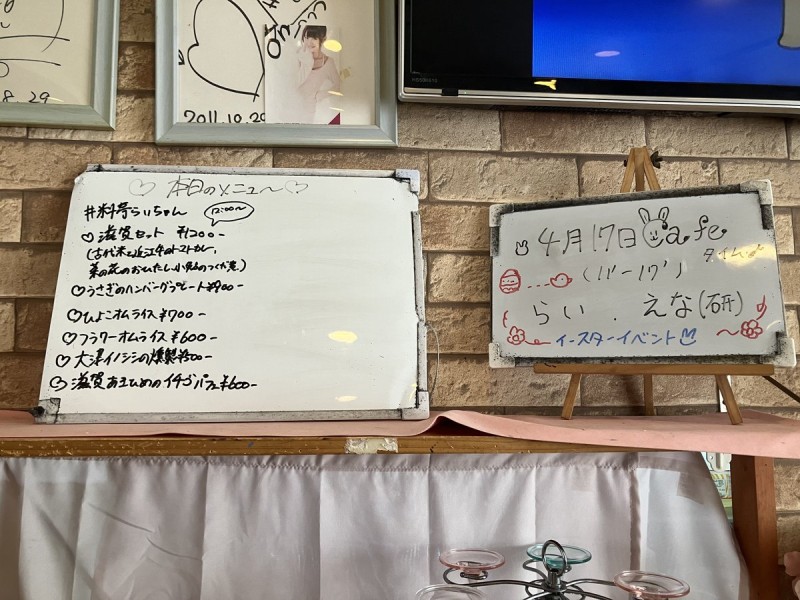 8.29
2011.10.29
♡ 本日のメニュー ♡
#料亭らいちゃん 12:00〜
♡ 滋賀セット ¥1200-
(古代米と近江牛のトマトカレー,
菜の花のおひたし,小鮎のつくだ煮)
♡うさぎのハンバーグプレート¥900-
♡ひよこオムライス¥700-
♡フラワーオムライス¥600-
♡大津イノシシの燻製¥500-
♡滋賀あまひめのイチゴパフェ¥600-
4月17日Cafe
タイム♪
(11'-17')
らい . えな(研)
イースターイベント